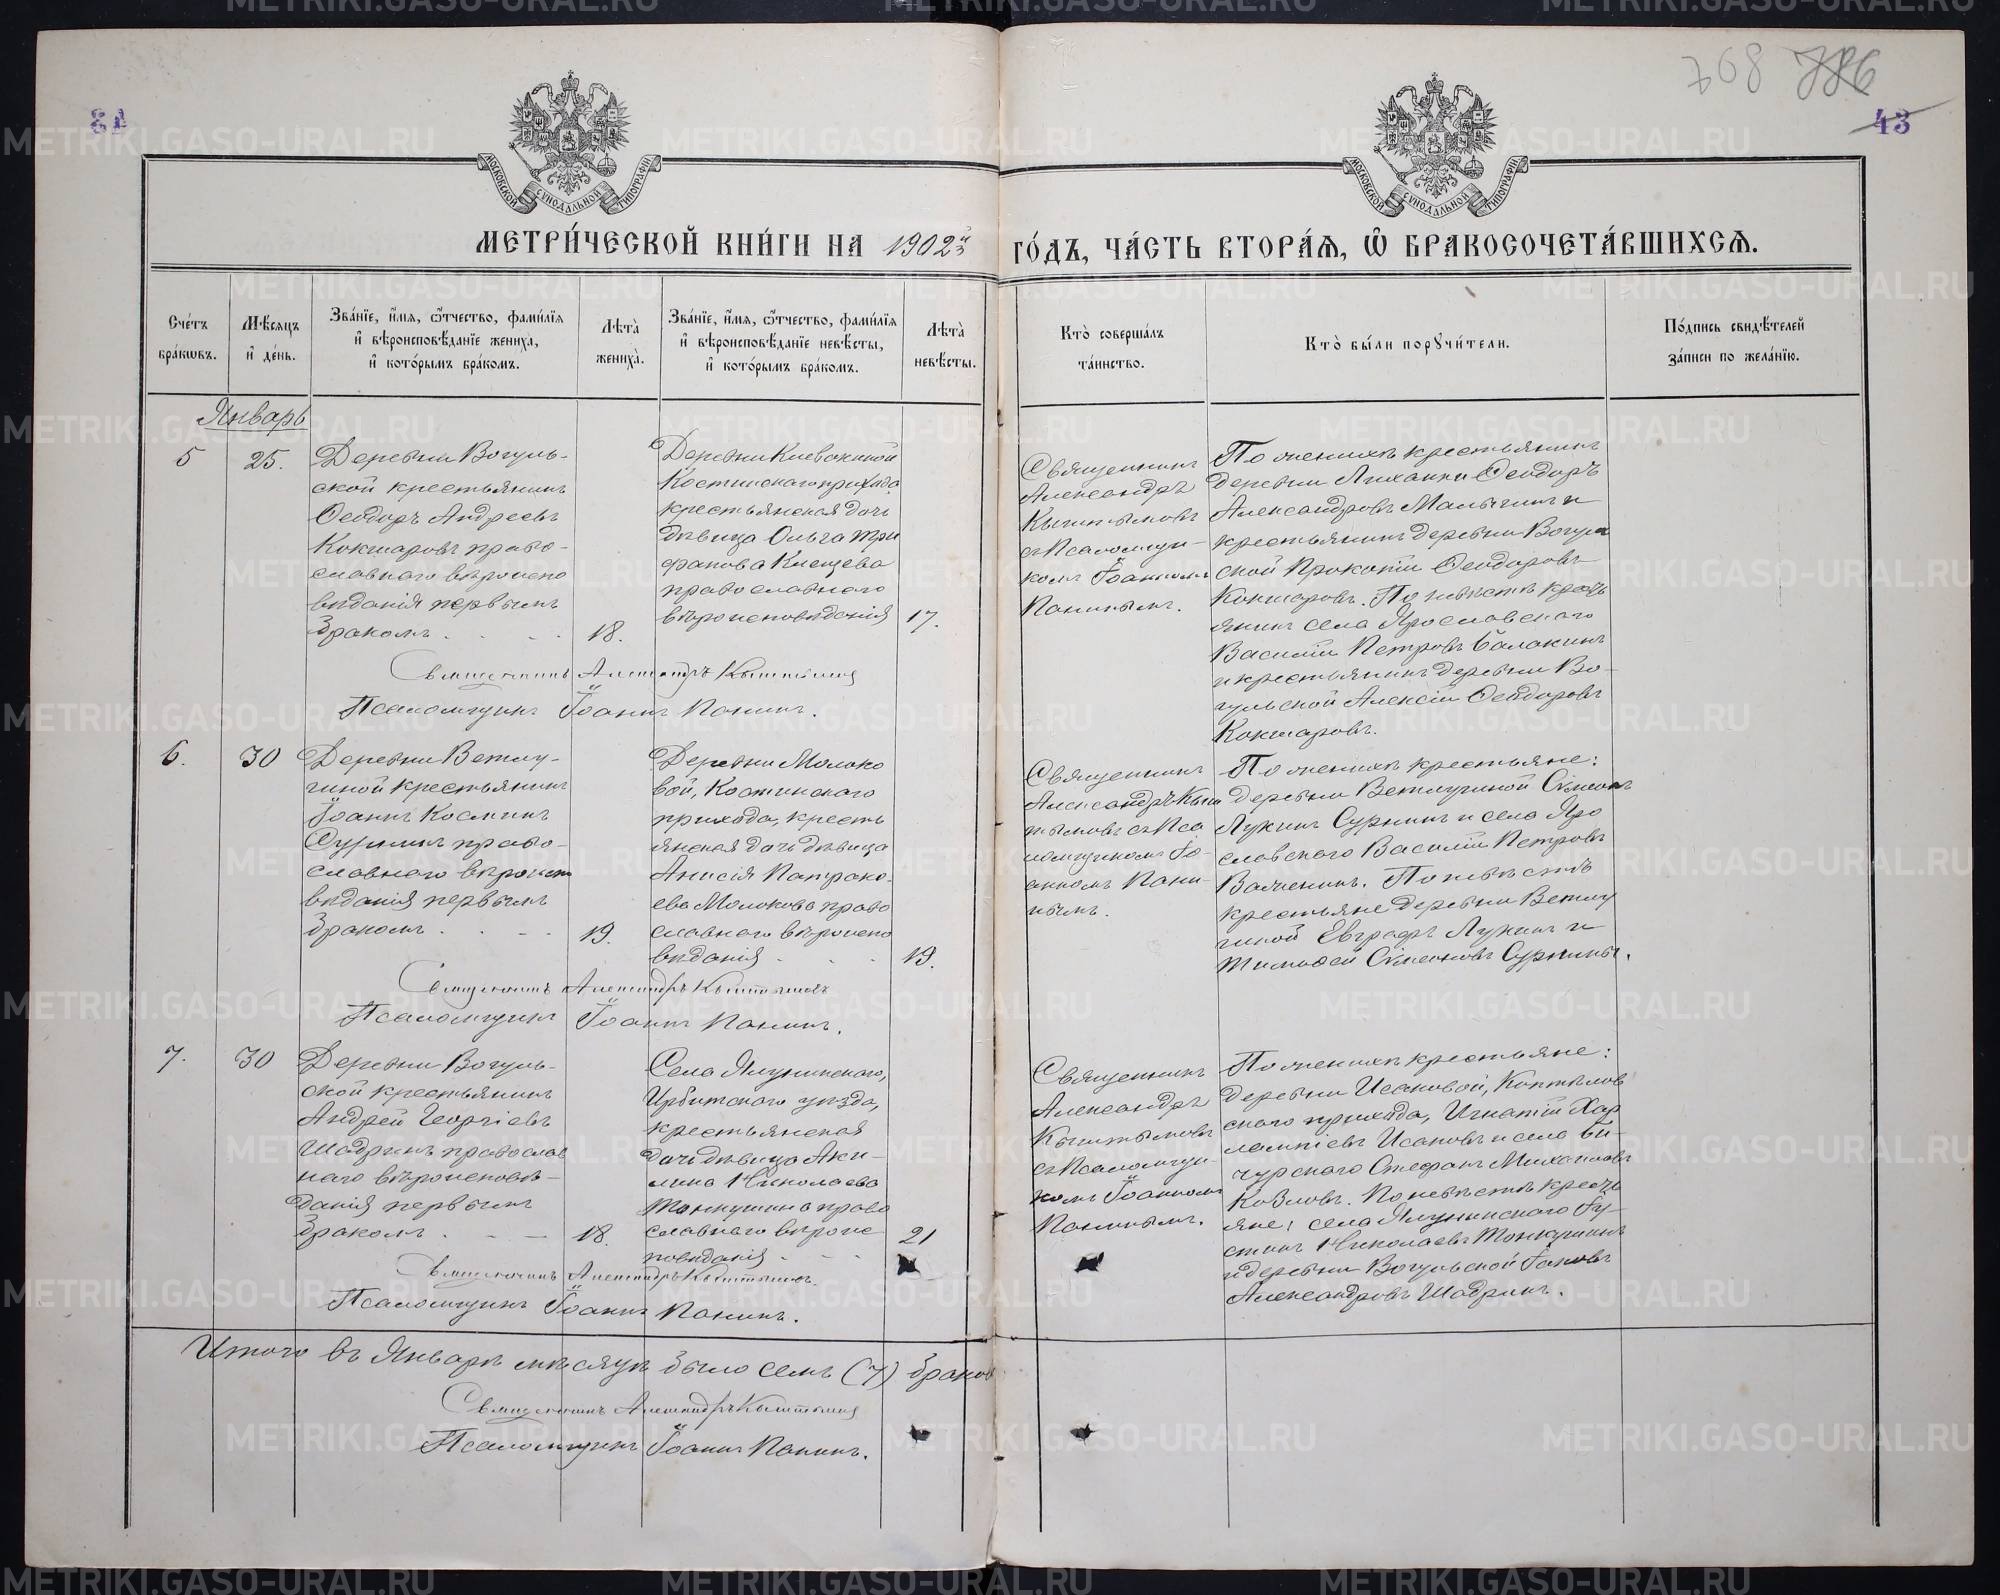 768 786
43
МЕТРИ́ЧЕСКОЙ КНИ́ГИ НА 1902й ГО́ДЪ, ЧА́СТЬ ВТОРА́Ѧ, Ѡ҆ БРАКОСОЧЕТА́ВШИХСѦ.
МОСКОВСКОЙ СѴНОДАЛЬНОЙ ТИПОГРАФІИ
МОСКОВСКОЙ СѴНОДАЛЬНОЙ ТИПОГРАФІИ
Сче́тъ
бра́кѡвъ.
Мѣ́сѧцъ
и҆ де́нь.
Зва́нїе, и҆́мѧ, ѻ҆́тчество, фами́лїѧ
и҆ вѣроисповѣ́данїе жениха̀,
и҆ кото́рымъ бра́комъ.
Лѣта̀
жениха̀.
Зва́нїе, и҆́мѧ, ѻ҆́тчество, фами́лїѧ
и҆ вѣроисповѣ́данїе невѣ́сты,
и҆ кото́рымъ бра́комъ.
Лѣта̀
невѣ́сты.
Кто̀ соверша́лъ
та́инство.
Кто̀ бы́ли порꙋчи́тели.
По́дпись свидѣ́телей
за́писи по жела́нїю.
Январь
5
25.
Деревни Вогуль-
ской крестьянинъ
Ѳеодоръ Андреевъ
Кокшаровъ право-
славнаго вѣроиспо
вѣданія первымъ
бракомъ . . .
18.
Деревни
Костинскаго прихода
крестьянская дочь
дѣвица Ольга Три
фанова Клещева
православнаго
вѣроисповѣданія
17.
Священникъ
Александръ
Кыштымовъ
съ Псаломщи-
комъ Іоанномъ
Панинымъ.
По женихѣ крестьянинъ
деревни Ѳеодоръ
Александровъ и
крестьянинъ деревни Вогул
ской Прокопій Ѳеодоровъ
Кокшаровъ. По невѣстѣ крест
янинъ села Ярославскаго
Василій Петровъ Балакинъ
и крестьянинъ деревни Во-
гульской Алексій Ѳеодоровъ
Кокшаровъ.
Священникъ Александръ Кыштымовъ
Псаломщикъ Іоаннъ Панинъ.
6.
30
Деревни Ветлу-
гиной крестьянинъ
Іоаннъ Косминъ
Суринъ право-
славнаго вѣроисп
вѣданія первымъ
бракомъ . . .
19.
Деревни Молоко
вой, Костинскаго
прихода, кресть
янская дочь дѣвица
Анисія
Молокова право
славнаго вѣроиспо
вѣданія . . .
19.
Священникъ
Александръ Кыш
тымовъ съ Пса
ломщикомъ Іо-
анномъ Пани-
нымъ.
По женихѣ крестьяне:
деревни Ветлугиной Сѵмеонъ
Лукинъ Суринъ и села Яро
славскаго Василій Петровъ
По невѣстѣ
крестьяне деревни Ветлу
гиной Евграфъ Лукинъ и
Тимоѳей Сѵмеоновъ Сурины.
Священникъ Александръ Кыштымовъ
Псаломщикъ Іоаннъ Панинъ.
7.
30
Деревни Вогуль-
ской крестьянинъ
Андрей Георгіевъ
Шадринъ православ
наго вѣроисповѣ-
данія первымъ
бракомъ . . .
18.
Села Ялунинскаго,
Ирбитскаго уѣзда,
крестьянская
дочь дѣвица Аки-
лина Николаева
Тонкушина право
славнаго вѣроис
повѣданія . . .
21
Священникъ
Александръ
Кыштымовъ
съ Псаломщи-
комъ Іоанномъ
Панинымъ.
По женихѣ крестьяне:
деревни Исаковой, Коптѣлов
скаго прихода, Игнатій Хар
лампіевъ Исаковъ и села Би-
чурскаго Стефанъ Михаиловъ
Козловъ. По невѣстѣ крест
яне: села Ялунинскаго Іу-
стинъ Николаевъ Тонкушинъ
и деревни Вогульской Іаковъ
Александровъ Шадринъ.
Священникъ Александръ Кыштымовъ.
Псаломщикъ Іоаннъ Панинъ.
Итого въ Январѣ мѣсяцѣ было семь (7) браков
Священникъ Александръ Кыштымовъ
Псаломщикъ Іоаннъ Панинъ.
METRIKI.GASO-URAL.RU